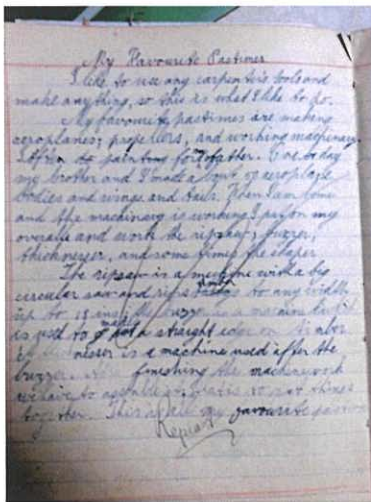 My Favourite Pastimes
I like to use any carpenter's tools and
make anything, so this is what I like to do.
My favourite pastimes are making
aeroplanes, propellers, and working machinery.
I often do painting for father.
my brother and I made a of aeroplane
bodies and wings and tails. When I am home
and the machinery is working I put on my
overalls and work the ripsaw, buzzer,
thicknesser, and some times the shaper
The ripsaw is a machine with a big
circular saw and rips timber to any width
up to 18 ins. The buzzer is a machine and it
is used to make a straight edge on timber
thicknesser is a machine used after the
buzzer. finishing the machine work
we have to assemble or put things
together. This is all my favourite pastimes
Repeat